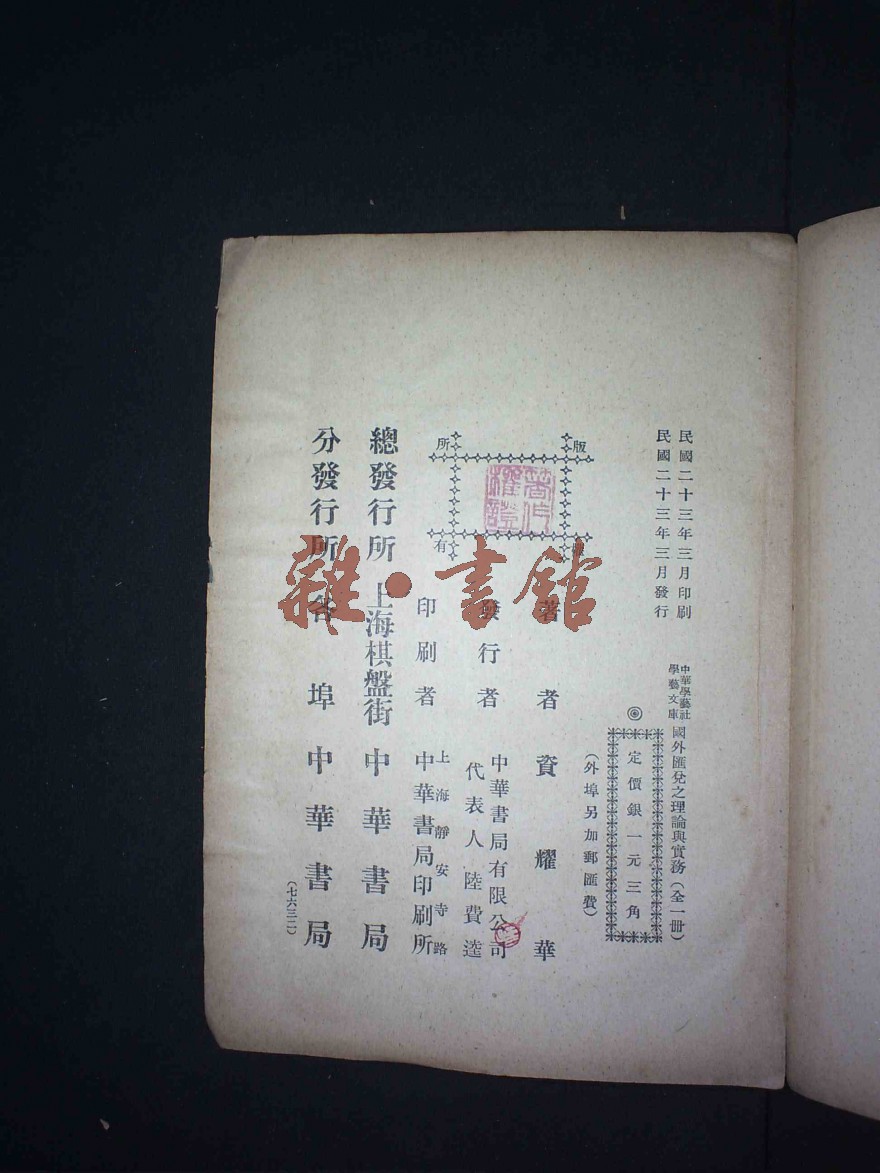 民國二十三年三月印刷
民國二十三年三月發行
中華學藝社
學藝文庫
國外匯兌之理論與實務（全一册）
◎
定價銀一元三角
（外埠另加郵匯費）
版
所
有
著者 資耀華
發行者
中華書局有限公司
代表人 陸費逵
印刷者
上海靜安寺路
中華書局印刷所
總發行所 上海棋盤街 中華書局
分發行所 各埠中華書局
（七六三二）
雜·書館